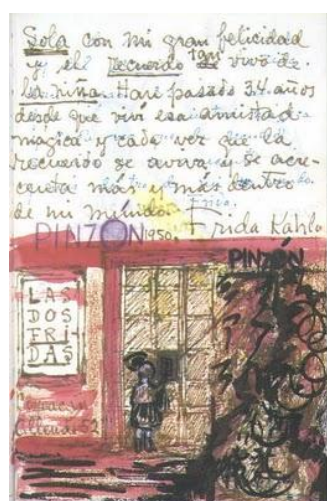 Sola con mi gran felicidad
y el recuerdo tan vivo de
la niña. Han pasado 34 años
desde que viví esa amistad
magica y cada vez que la
recuerdo se aviva y se acre-
cienta más y más dentro
de mi mundo.
PINZÓN 1950. Frida Kahlo
PINZÓN
LAS
DOS
FRI
DAS
Coyoacán
Allende 52